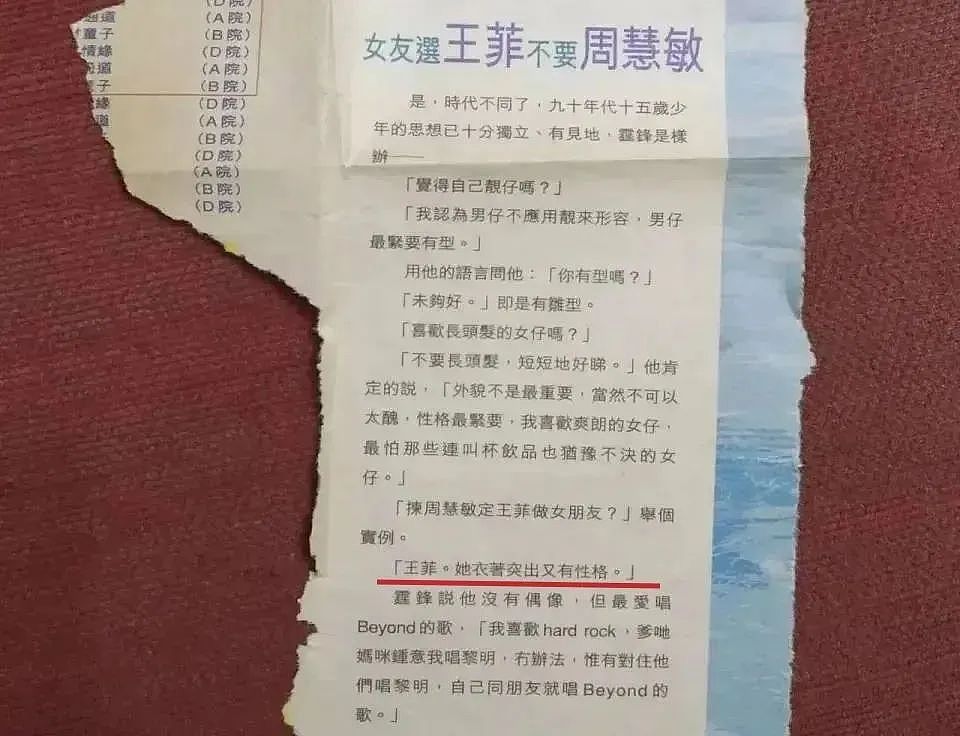 (D院)
道 (A院)
童子 (B院)
情緣 (D院)
道 (A院)
子 (B院)
緣 (D院)
道 (A院)
(B院)
(D院)
(A院)
(B院)
(D院)
女友選王菲不要周慧敏
是，時代不同了，九十年代十五歲少
年的思想已十分獨立、有見地，霆鋒是樣
辦——
「覺得自己靚仔嗎？」
「我認為男仔不應用靚來形容，男仔
最緊要有型。」
用他的語言問他：「你有型嗎？」
「未夠好。」即是有雛型。
「喜歡長頭髮的女仔嗎？」
「不要長頭髮，短短地好睇。」他肯
定的說，「外貌不是最重要，當然不可以
太醜，性格最緊要，我喜歡爽朗的女仔，
最怕那些連叫杯飲品也猶豫不決的女
仔。」
「揀周慧敏定王菲做女朋友？」舉個
實例。
「王菲。她衣著突出又有性格。」
霆鋒說他沒有偶像，但最愛唱
Beyond的歌，「我喜歡hard rock，爹哋
媽咪鍾意我唱黎明，冇辦法，惟有對住他
們唱黎明，自己同朋友就唱Beyond的
歌。」